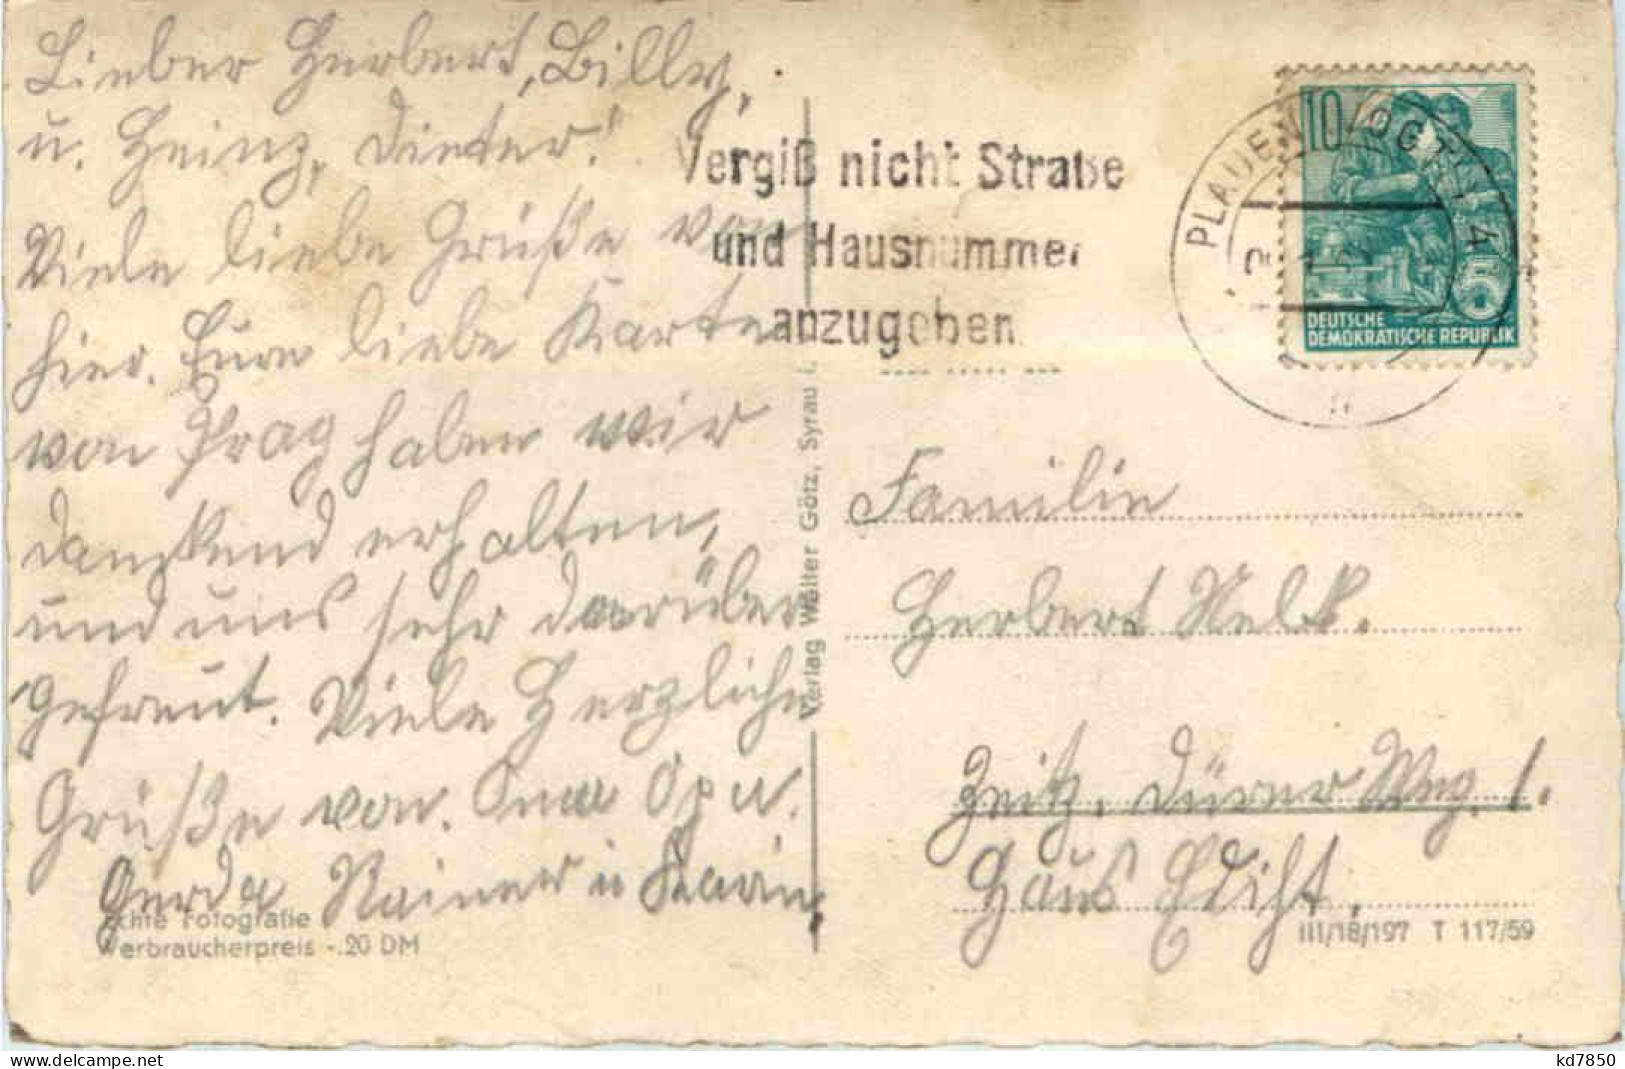 Lieber Herbert, Billy,
u. Heinz, Dieter!
Viele liebe Grüße von
hier. Eure liebe Karte
von Prag haben wir
dankend erhalten,
und uns sehr darüber
gefreut. Viele Herzliche
Grüße von. Oma Opa u.
Gerda Rainer u Karin.
Echte Fotografie
Verbraucherpreis -.20 DM
Verlag Walter Götz, Syrau i.
Vergiß nicht Straße
und Hausnummer
anzugeben
PLAUEN (VOGTL) 4
10
DEUTSCHE
DEMOKRATISCHE REPUBLIK
5
Familie
Herbert
Zeitz, Dürer Weg. 1.
Haus
III/18/197 T 117/59
www.delcampe.net
kd7850